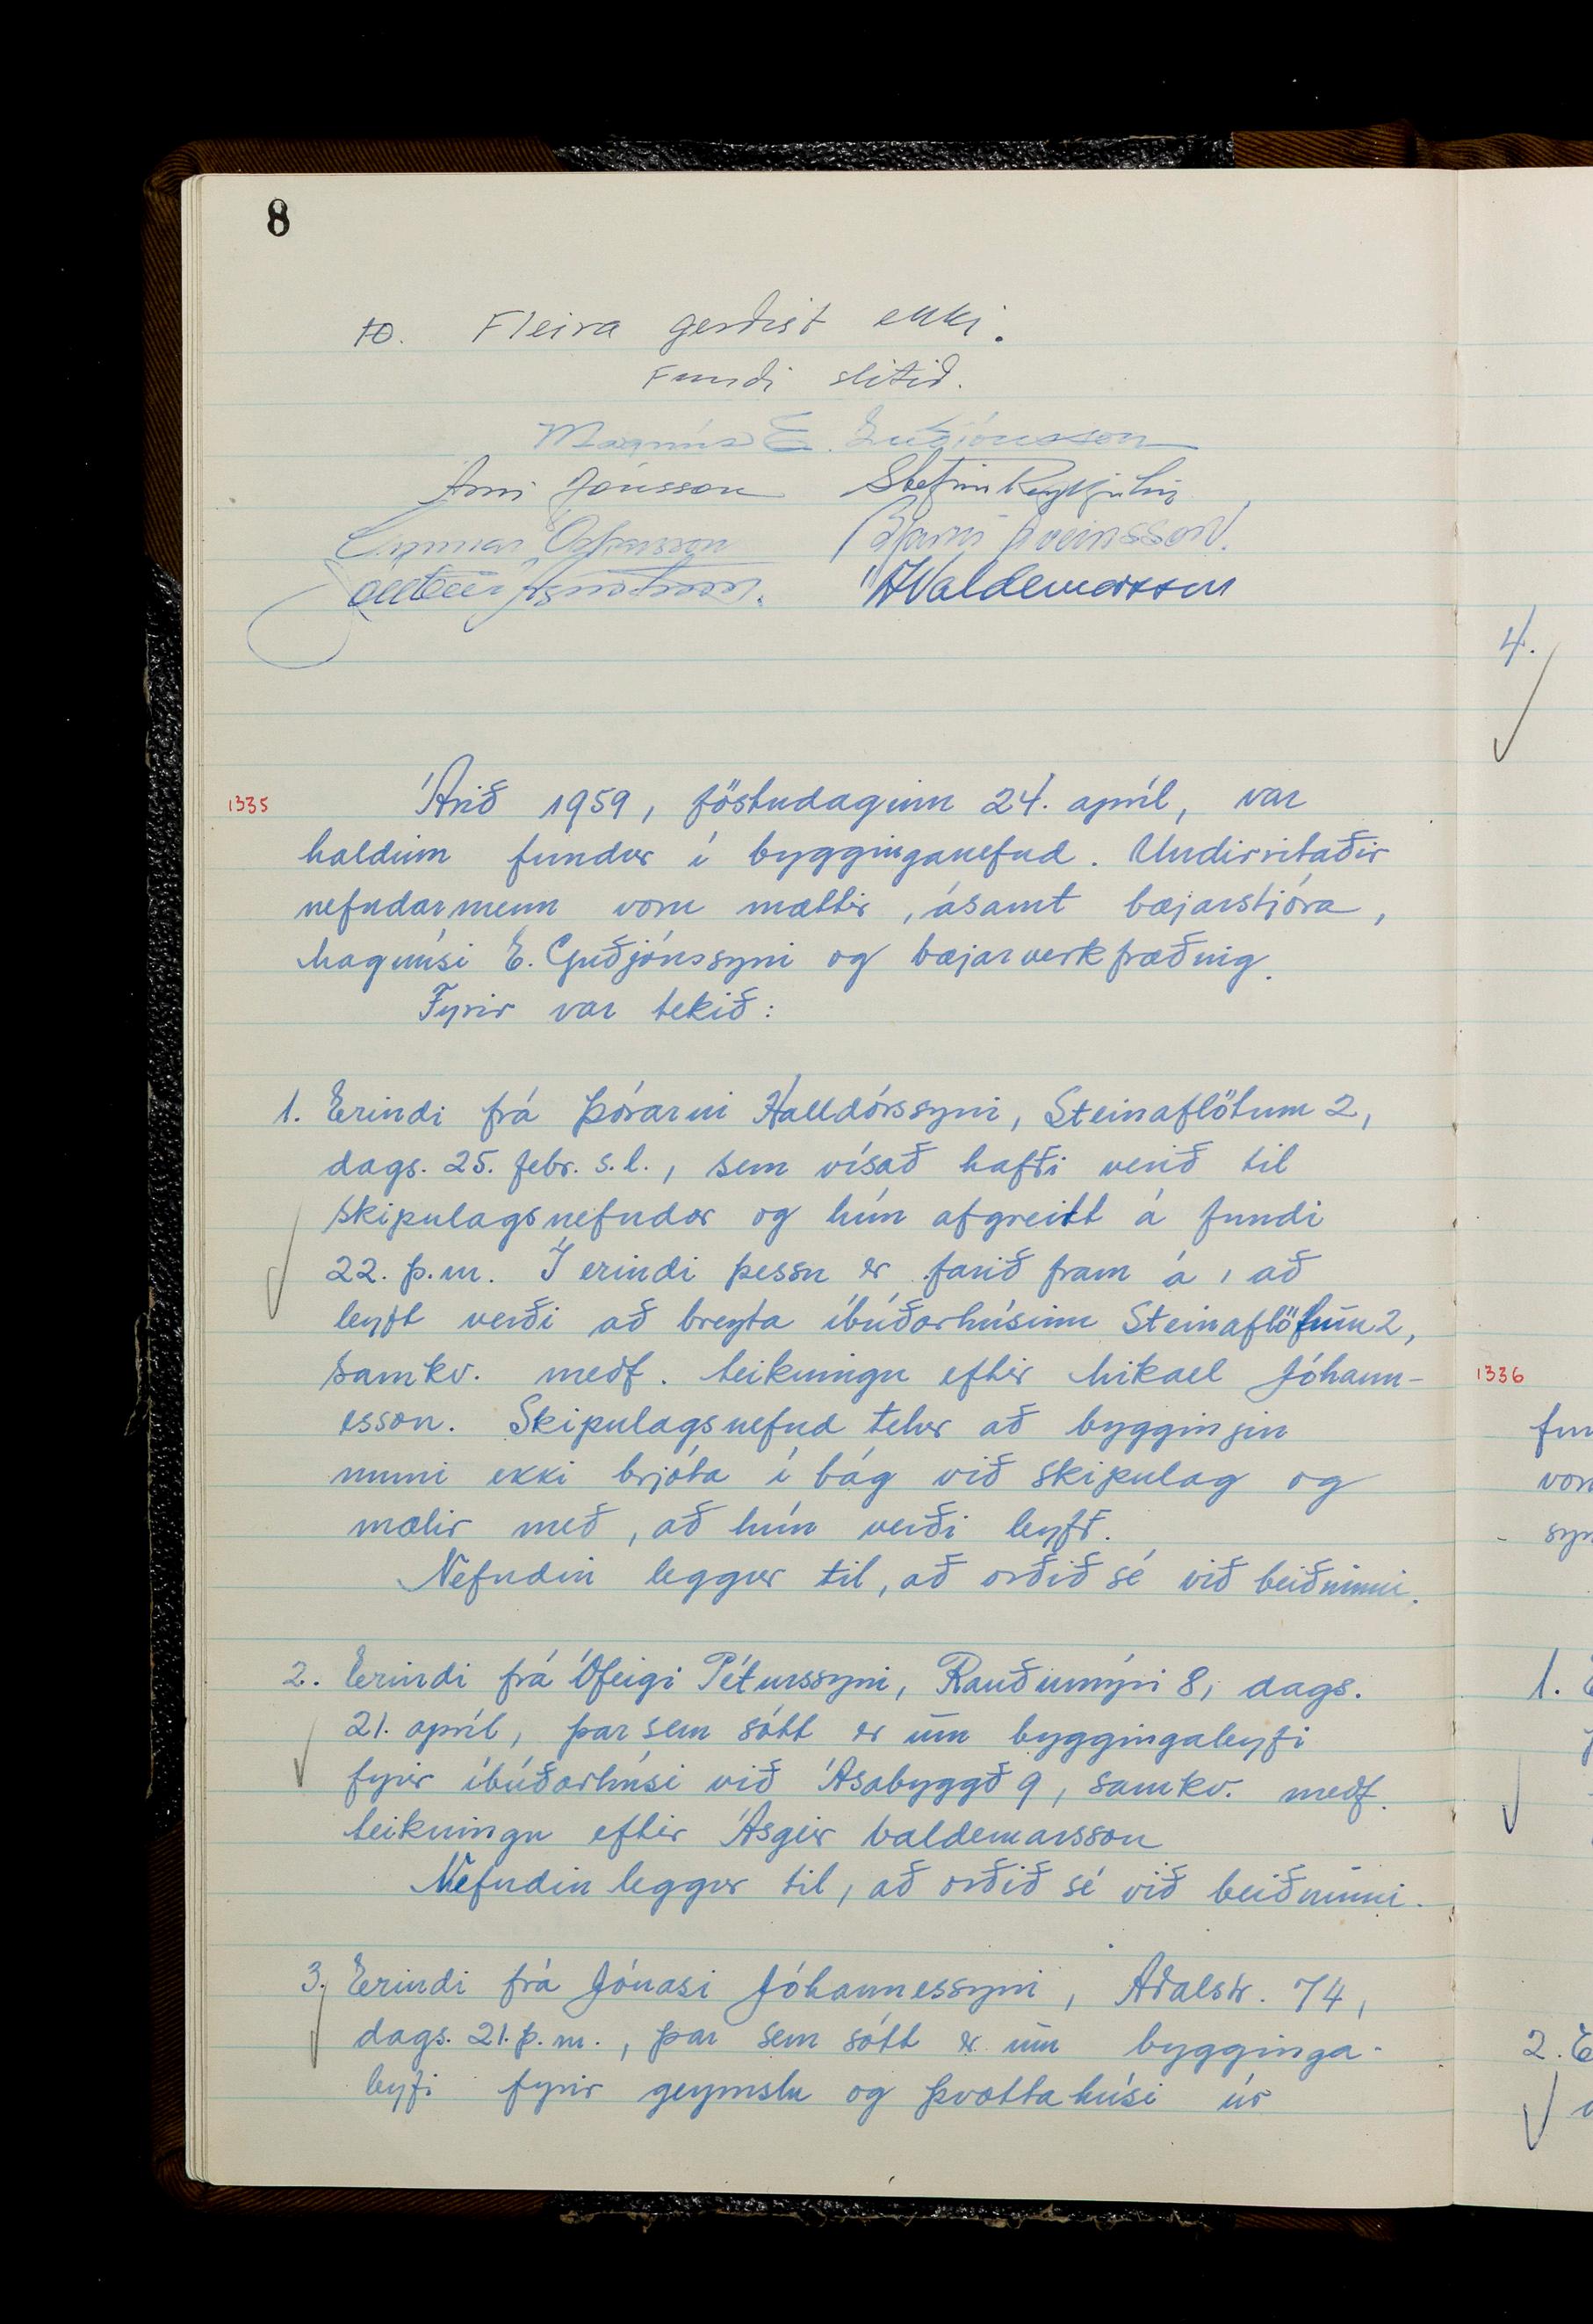 8
10. Fleira gerðist ekki.
Fundi slitið.
Magnús E. Guðjónsson
Árni Jónsson Stefán Reykjalín
Gunnar Óskarsson Bjarni Sveinsson.
ÁValdemarsson
1335 Árið 1959, föstudaginn 24. apríl, var
haldinn fundur í bygginganefnd. Undirritaðir
nefndarmenn voru mættir, ásamt bæjarstjóra,
Magnúsi E. Guðjónssyni og bæjarverkfræðing.
Fyrir var tekið:
1. Erindi frá Þórarni Halldórssyni, Steinaflötum 2,
dags. 25. febr. s.l., sem vísað hafði verið til
skipulagsnefndar og hún afgreitt á fundi
22. þ.m. Í erindi þessu er farið fram á, að
leyft verði að breyta íbúðarhúsinu Steinaflötum 2,
samkv. meðf. teikningu eftir Mikael Jóhann-
esson. Skipulagsnefnd telur að byggingin
muni ekki brjóta í bág við skipulag og
mælir með, að hún verði leyft.
Nefndin leggur til, að orðið sé við beiðninni.
2. Erindi frá Ófeigi Péturssyni, Rauðumýri 8, dags.
21. apríl, þar sem sótt er um byggingaleyfi
fyrir íbúðarhúsi við Ásabyggð 9, samkv. meðf.
teikningu eftir Ásgeir Valdemarsson
Nefndin leggur til, að orðið sé við beiðninni.
3. Erindi frá Jónasi Jóhannessyni, Aðalstr. 74,
dags. 21. þ.m., þar sem sótt er um bygginga-
leyfi fyrir geymslu og þvottahúsi úr
4.
1336
1.
2.